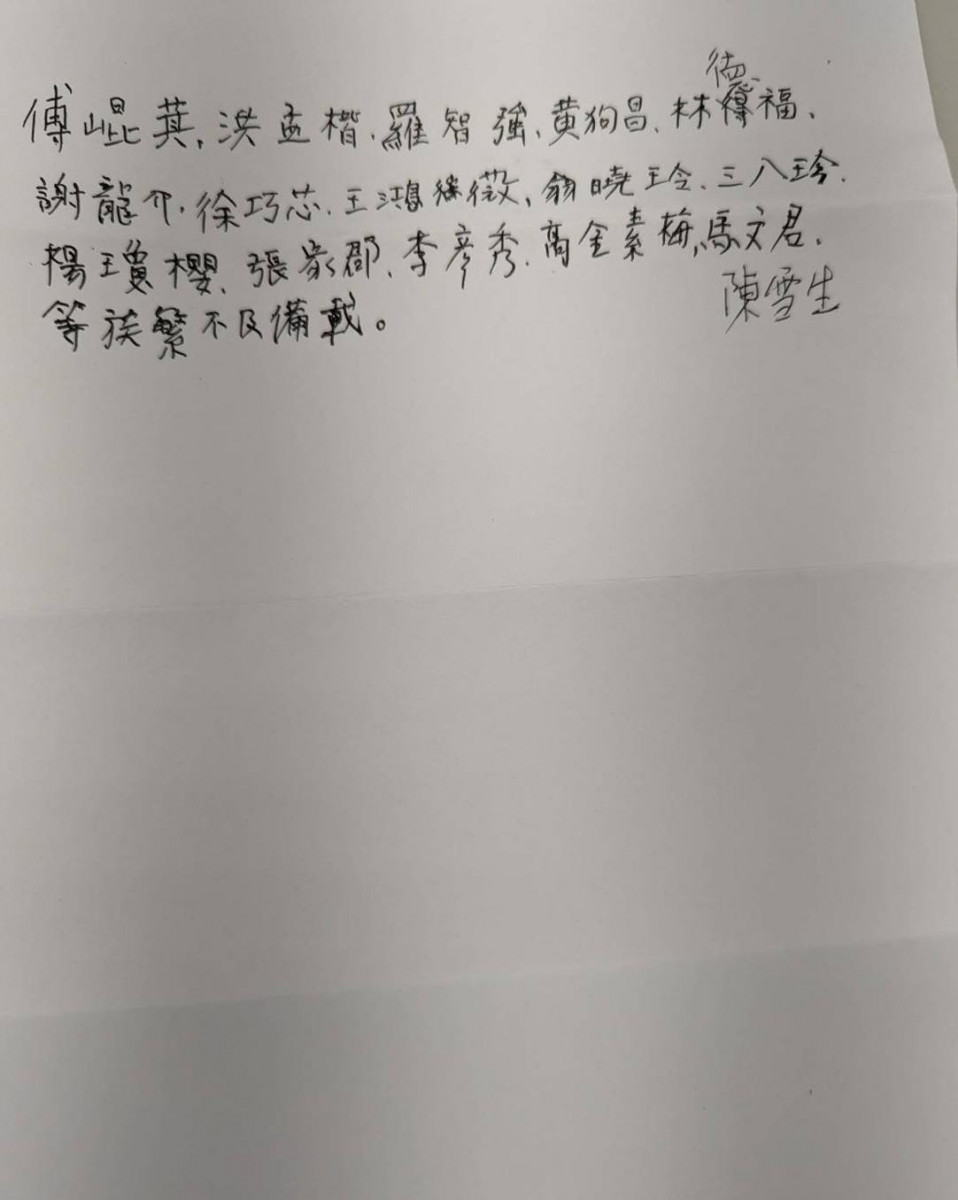 傅崐萁,洪孟楷、羅智強、黃狗昌、林德福、
謝龍介、徐巧芯、王鴻薇、翁曉玲、三八玲、
楊瓊櫻、張家郡、李彥秀、高金素梅、馬文君、
陳雪生
等族繁不及備載。